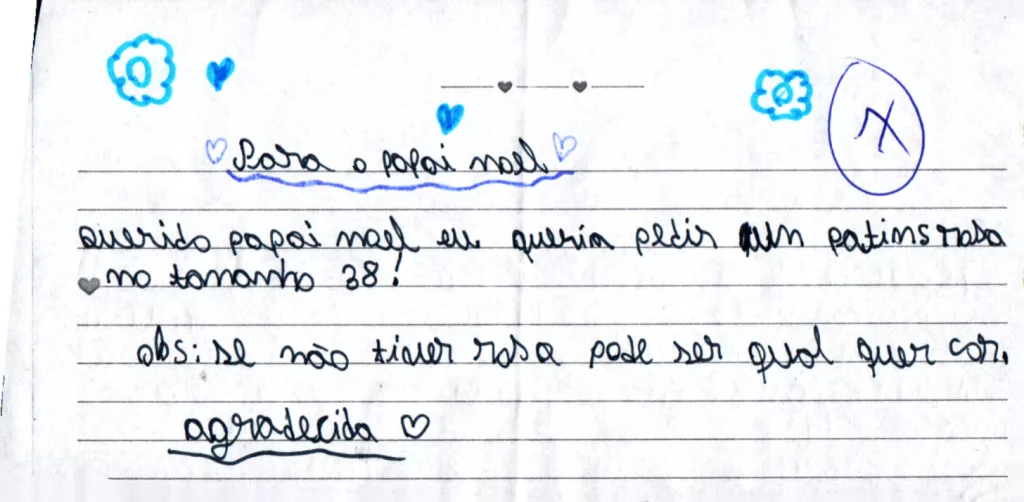 X
Para o papai noel
querido papai noel eu queria pedir um patins rosa
no tamanho 38!
obs: se não tiver rosa pode ser qual quer cor.
agradecida